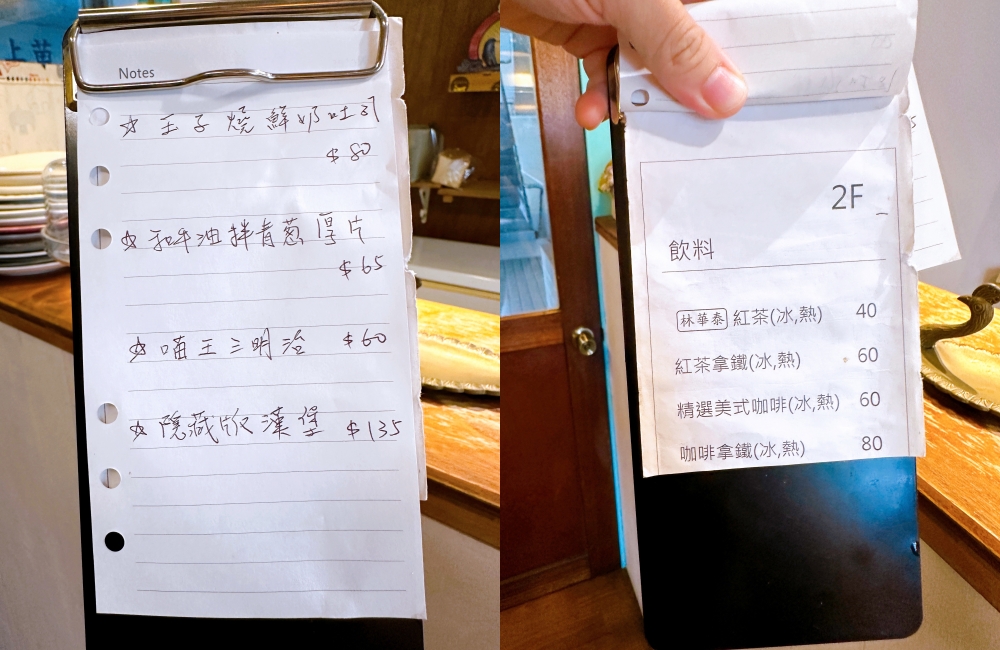 上
Notes
☆ 王子燒鮮奶吐司
$80
☆ 和牛油拌青蔥厚片
$65
☆ 喵王三明治 $60
☆ 隱藏版漢堡 $135
2F
飲料
林華泰 紅茶(冰,熱) 40
紅茶拿鐵(冰,熱) 60
精選美式咖啡(冰,熱) 60
咖啡拿鐵(冰,熱) 80